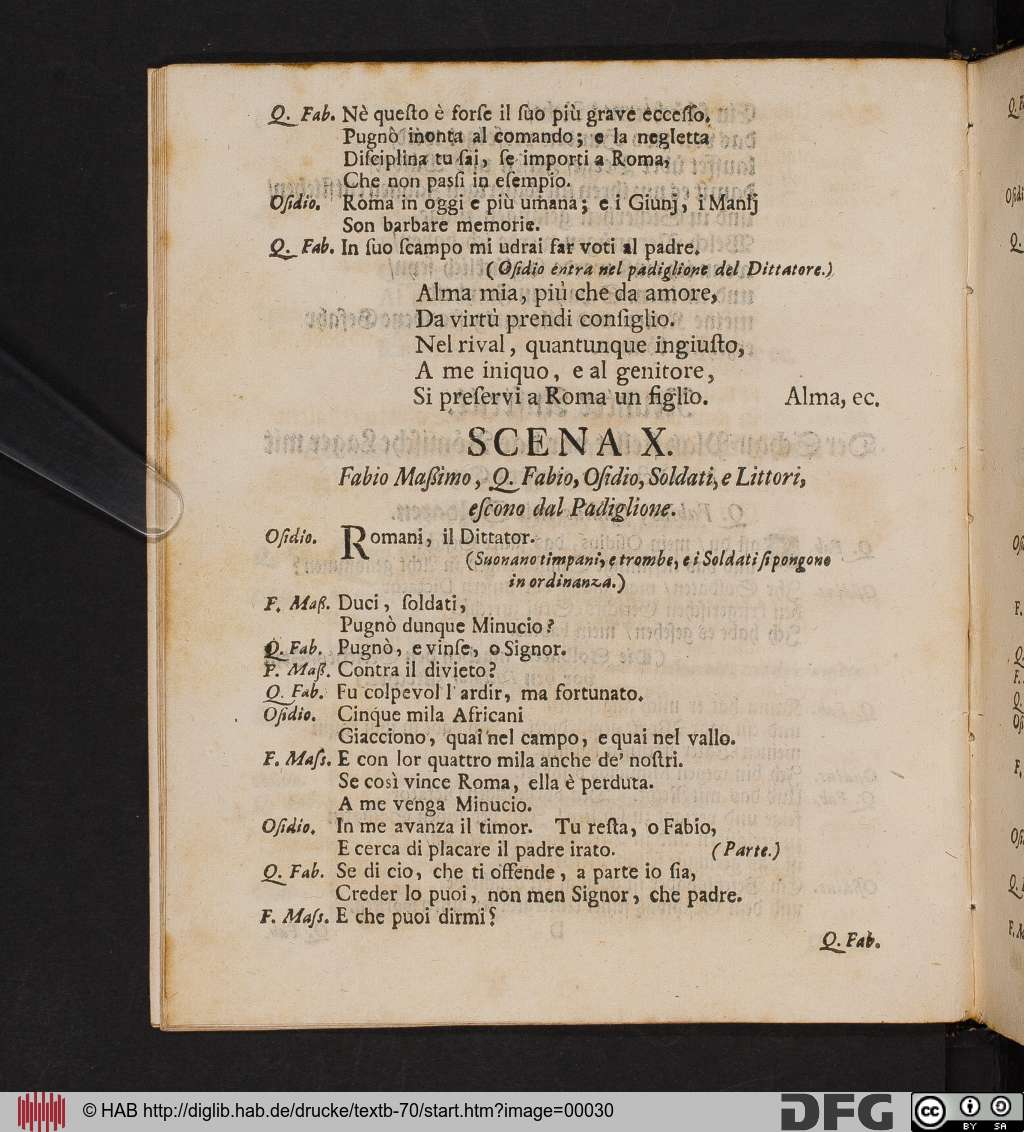 Q. Fab. Nè queſto è forſe il ſuo più grave ecceſſo.
Pugnò inonta al comando; e la negletta
Diſciplina tu ſai, ſe importi a Roma,
Che non paſſi in eſempio.
Oſidio. Roma in oggi e più umana; e i Giunj, i Manlj
Son barbare memorie.
Q. Fab. In ſuo ſcampo mi udrai far voti al padre.
(Oſidio entra nel padiglione del Dittatore.)
Alma mia, più che da amore,
Da virtù prendi conſiglio.
Nel rival, quantunque ingiuſto,
A me iniquo, e al genitore,
Si preſervi a Roma un figlio. Alma, ec.
SCENA X.
Fabio Maßimo, Q. Fabio, Oſidio, Soldati, e Littori,
eſcono dal Padiglione.
Oſidio. Romani, il Dittator.
(Suonano timpani, e trombe, e i Soldati ſi pongono
in ordinanza.)
F. Maß. Duci, ſoldati,
Pugnò dunque Minucio?
Q. Fab. Pugnò, e vinſe, o Signor.
F. Maß. Contra il divieto?
Q. Fab. Fu colpevol l ardir, ma fortunato.
Oſidio. Cinque mila Africani
Giacciono, quai nel campo, e quai nel vallo.
F. Maſs. E con lor quattro mila anche de' noſtri.
Se così vince Roma, ella è perduta.
A me venga Minucio.
Oſidio. In me avanza il timor. Tu reſta, o Fabio,
E cerca di placare il padre irato. (Parte.)
Q. Fab. Se di cio, che ti offende, a parte io ſia,
Creder lo puoi, non men Signor, che padre.
F. Maſs. E che puoi dirmi?
Q. Fab.
© HAB http://diglib.hab.de/drucke/textb-70/start.htm?image=00030
DFG
cc BY SA